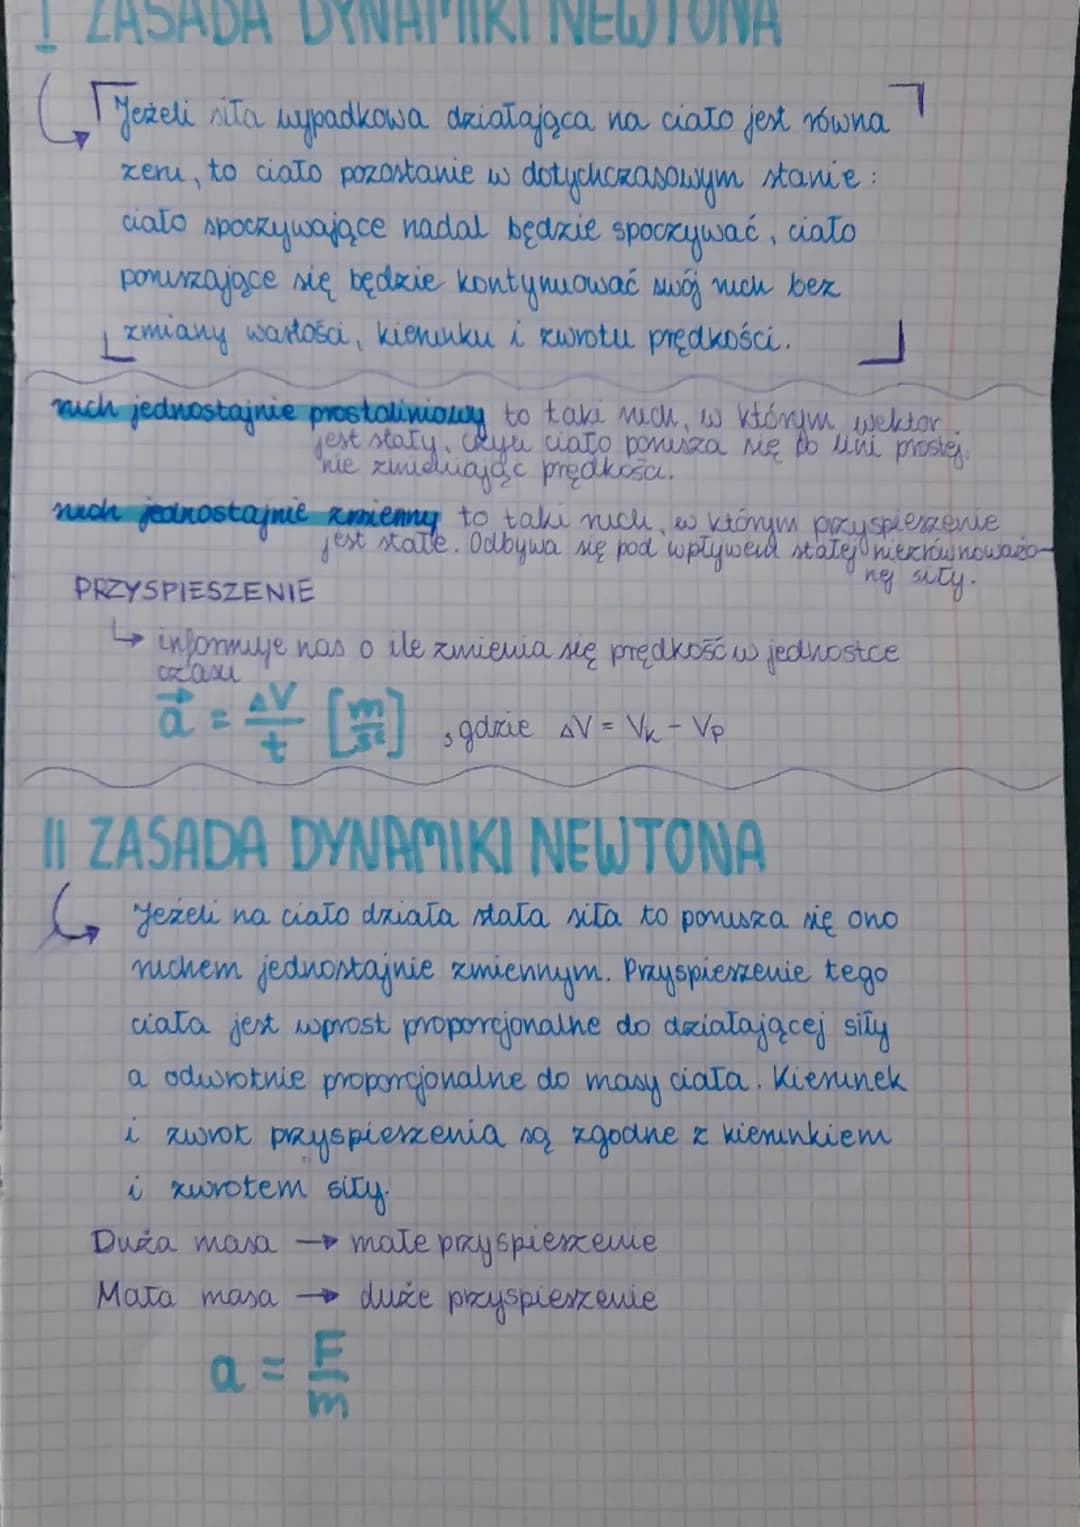 I ZASADA DYNAMIKI NEWTONA
Jeżeli siła wypadkowa działająca na ciało jest równa
zeru, to ciało pozostanie w dotychczasowym stanie:
ciało spoczywające nadal będzie spoczywać, ciało
poruszające się będzie kontynuować swój ruch bez
zmiany wartości, kierunku i zwrotu prędkości.
ruch jednostajnie prostoliniowy to taki ruch, w którym wektor
jest stały, czyli ciało porusza się po lini prostej.
nie zmieniając prędkości.
ruch jednostajnie zmienny to taki ruch, w którym przyspieszenie
jest stałe. Odbywa się pod wpływem stałej niezrównoważo-
nej siły.
PRZYSPIESZENIE
↳ informuje nas o ile zmienia się prędkość w jednostce
czasu
a⃗ = ΔV/t [m/s²], gdzie ΔV = Vk - Vp
II ZASADA DYNAMIKI NEWTONA
Jeżeli na ciało działa stała siła to porusza się ono
ruchem jednostajnie zmiennym. Przyspieszenie tego
ciała jest wprost proporcjonalne do działającej siły
a odwrotnie proporcjonalne do masy ciała. Kierunek
i zwrot przyspieszenia są zgodne z kierunkiem
i zwrotem siły.
Duża masa → małe przyspieszenie
Mała masa → duże przyspieszenie
a = F/m